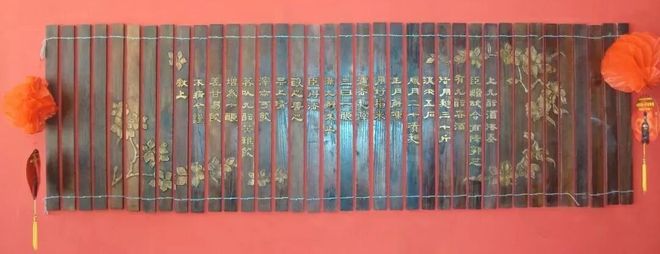 上九醞酒法奏
臣縣故令南陽郭芝
有九醞春酒
法用麴三十斤
流水五石
臘月二日漬麴
正月凍解
用好稻米
漉去麴滓
三日一釀
滿九斛米止
臣得法
釀之常善
其上清
滓亦可飲
若以九醞苦難飲
增為十釀
差甘易飲
不病今謹
上